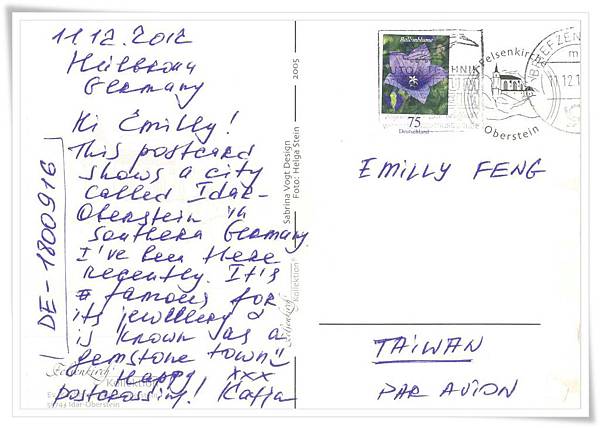 11.12.2012
Heilbronn
Germany
Hi Emilly!
This postcard
shows a city
called Idar-
Oberstein in
southern Germany
I've been there
recently. It's
famous for
its jewellery &
is known as a
"gemstone town"
Happy xxx
postcrossing! Katja
DE-1800916
2005
Sabrina Vogt Design
Foto: Helga Stein
Felsenkirch
Kollektion
55743 Idar-Oberstein
Ballonblume
75
Deutschland
Felsenkirche
Oberstein
BRIEFZEN
11.12.1
EMILLY FENG
TAIWAN
PAR AVION